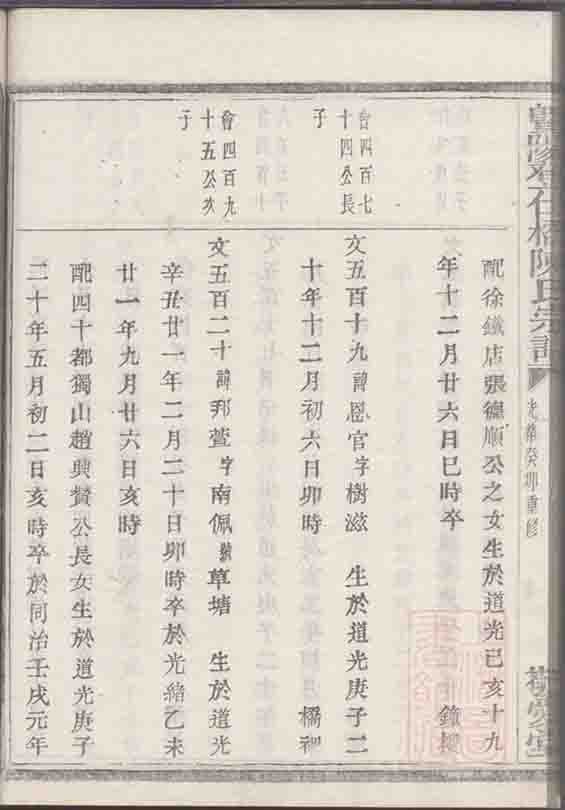 石橋陳氏宗譜
光緒癸卯重修
配徐鐵店張德順公之女生於道光己亥十九
年十二月廿六日巳時卒
會四百七
十四公長
子
文五百十九諱恩官字樹滋 生於道光庚子二
十年十二月初六日卯時
會四百九
十五公次
子
文五百二十諱邦萱字南佩號草塘 生於道光
辛丑廿一年二月二十日卯時卒於光緒乙未
廿一年九月廿六日亥時
配四十都獨山趙興贊公長女生於道光庚子
二十年五月初二日亥時卒於同治壬戌元年